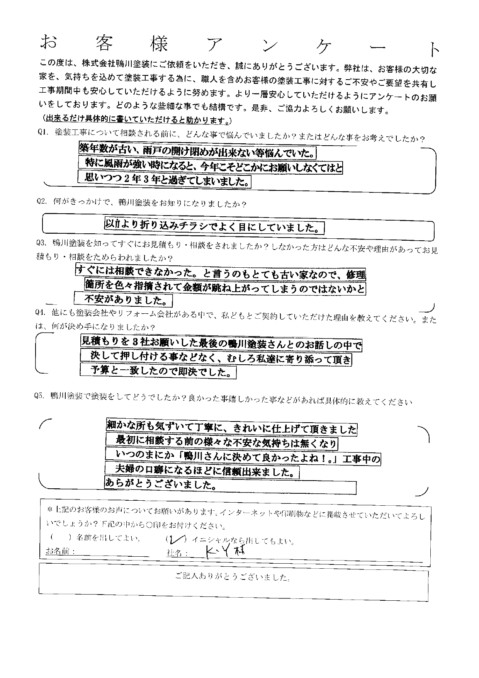 お客様アンケート
この度は、株式会社鴨川塗装にご依頼をいただき、誠にありがとうございます。弊社は、お客様の大切な
家を、気持ちを込めて塗装工事する為に、職人を含めお客様の塗装工事に対するご不安やご要望を共有し
工事期間中も安心していただけるように努めます。より一層安心していただけるようにアンケートのお願
いをしております。どのような些細な事でも結構です。是非、ご協力よろしくお願いします。
(出来るだけ具体的に書いていただけると助かります。)
Q1. 塗装工事について相談される前に、どんな事で悩んでいましたか?またはどんな事をお考えでしたか?
築年数が古い、雨戸の開け閉めが出来ない等悩んでいた。
特に風雨が強い時になると、今年こそどこかにお願いしなくてはと
思いつつ2年3年と過ぎてしまいました。
Q2. 何がきっかけで、鴨川塗装をお知りになりましたか?
以前より折り込みチラシでよく目にしていました。
Q3. 鴨川塗装を知ってすぐにお見積もり・相談をされましたか?しなかった方はどんな不安や理由があってお見
積もり・相談をためらわれましたか?
すぐには相談できなかった。と言うのもとても古い家なので、修理
箇所を色々指摘されて金額が跳ね上がってしまうのではないかと
不安がありました。
Q4. 他にも塗装会社やリフォーム会社がある中で、私どもとご契約していただけた理由を教えてください。また
は、何が決め手になりましたか?
見積もりを3社お願いした最後の鴨川塗装さんとのお話しの中で
決して押し付ける事などなく、むしろ私達に寄り添って頂き
予算と一致したので即決でした。
Q5. 鴨川塗装で塗装をしてどうでしたか?良かった事嬉しかった事などがあれば具体的に教えてください
細かな所も気ずいて丁寧に、きれいに仕上げて頂きました
最初に相談する前の様々な不安な気持ちは無くなり
いつのまにか「鴨川さんに決めて良かったよね!。」工事中の
夫婦の口癖になるほどに信頼出来ました。
ありがとうございました。
*上記のお客様のお声についてお願いがあります。インターネットや印刷物などに掲載させていただいてよろし
いでしょうか?下記の中から○印をお付けください。
( )名前を出してよい。 ( )イニシャルなら出してもよい。
お名前: K・Y様
ご記入ありがとうございました。